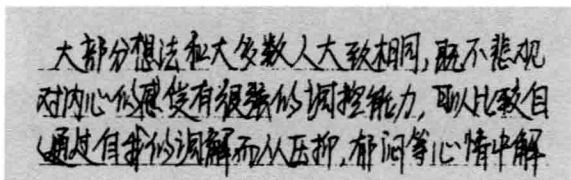 大部分想法和大多数人大致相同，既不悲观
对内心的感受有很强的调控能力，可以比较自
通过自我的调解而从压抑，郁闷等心情中解